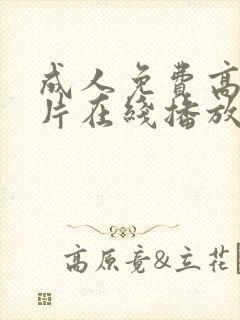 成人免費高
片在綫播放
高原竟&立花